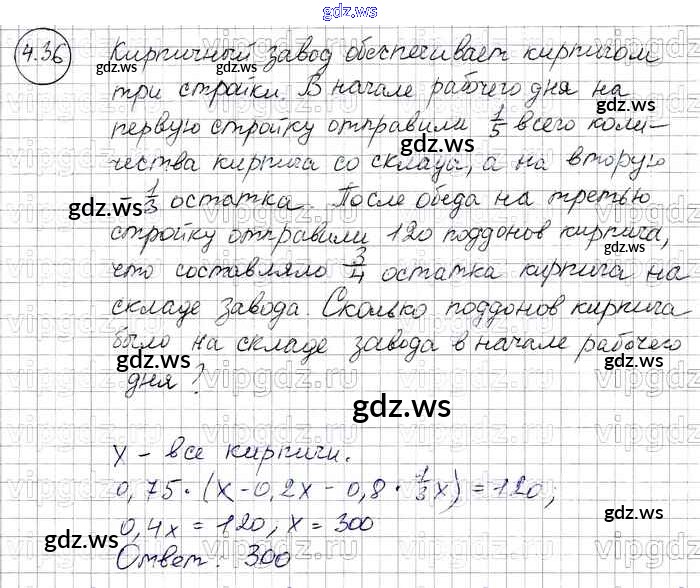 gdz.ws
4.36 Кирпичный завод обеспечивает кирпичом
три стройки. В начале рабочего дня на
первую стройку отправили 1/5 всего коли-
чества кирпича со склада, а на вторую
- 1/3 остатка. После обеда на третью
стройку отправили 120 поддонов кирпича,
что составляло 3/4 остатка кирпича на
складе завода. Сколько поддонов кирпича
было на складе завода в начале рабочего
дня?
x - все кирпичи.
0,75 · (x - 0,2x - 0,8 · 1/3 x) = 120,
0,4x = 120, x = 300
Ответ: 300
gdz.ws
gdz.ws
gdz.ws
gdz.ws
gdz.ws
gdz.ws
gdz.ws
gdz.ws
gdz.ws
gdz.ws
gdz.ws